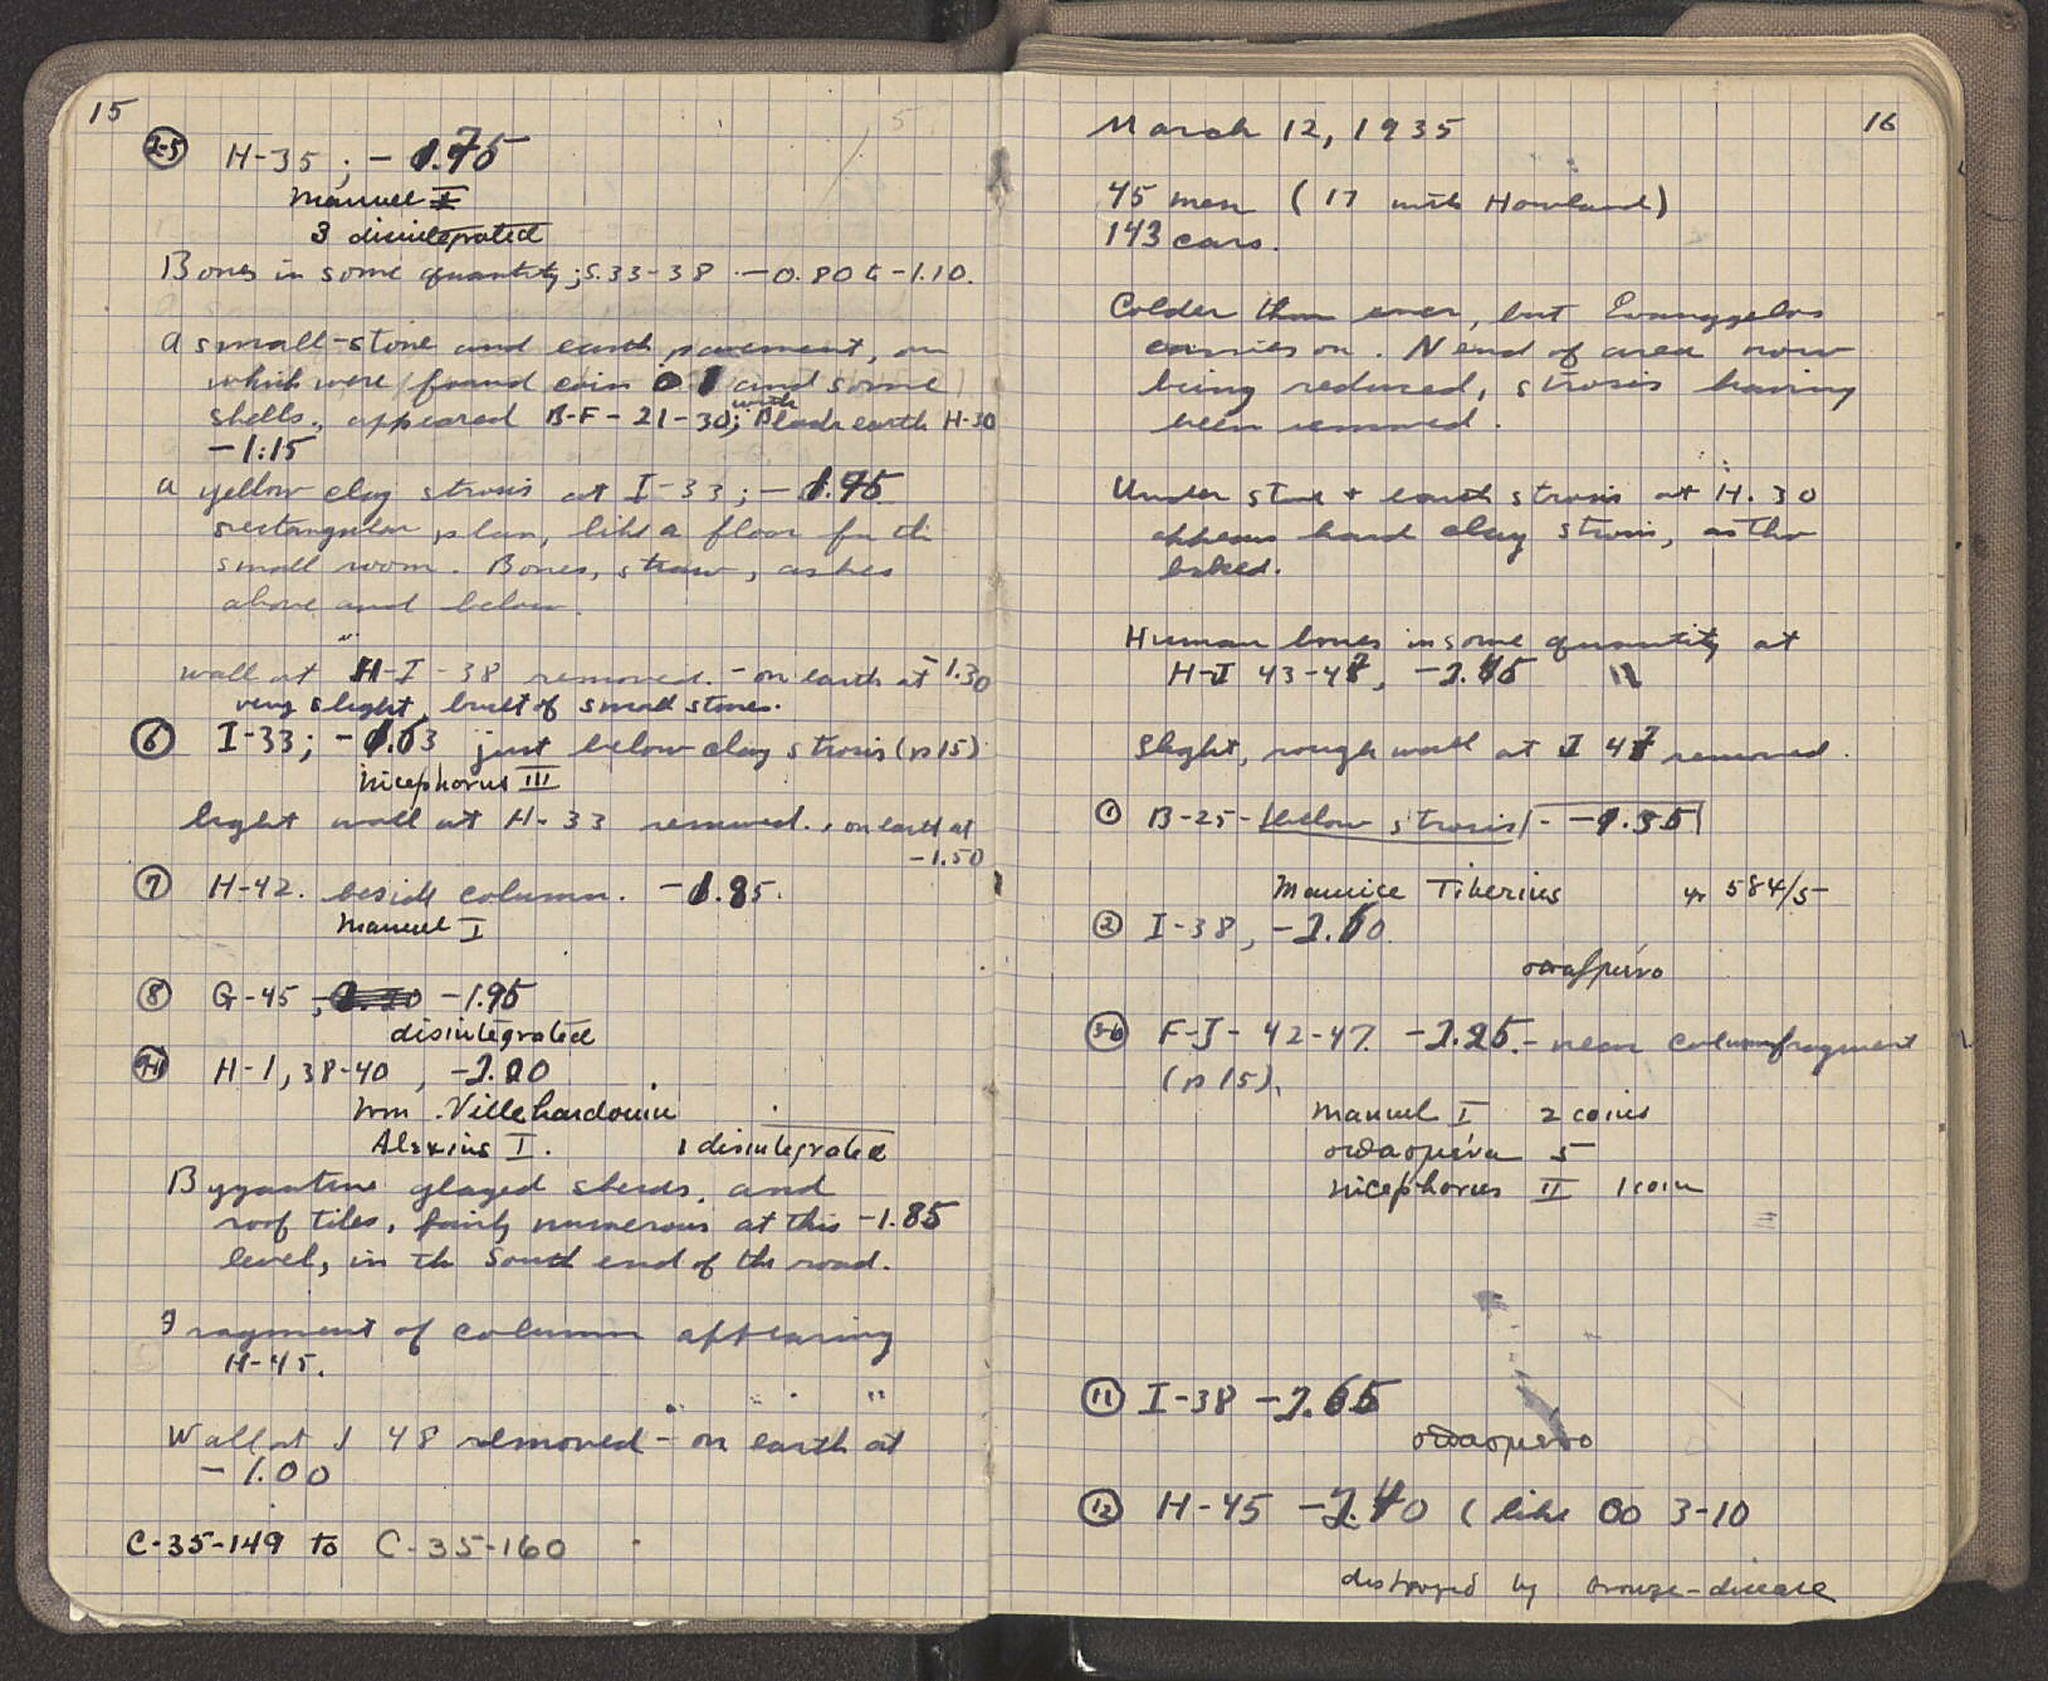 15
2-5 H-35; - 1.75
Manuel I
3 disintegrated
Bones in some quantity; S.33-38 - -0.80 to -1.10.
A small-stone and earth pavement, on
which were found coin 1 and some
shells, appeared B-F - 21-30; with Black earth H-30
-1.15
A yellow clay strosis at I-33; - 1.95
rectangular plan, like a floor for the
small room. Bones, straw, ashes
above and below.
Wall at H-I-38 removed. - on earth at -1.30
very slight, built of small stones.
6 I-33; - 1.63 just below clay strosis (p 15)
Nicephorus III
Light wall at H-33 removed., on earth at
-1.50
7 H-42. beside column. -1.85.
Manuel I
8 G-45, -1.95
disintegrated
9-11 H-I, 38-40, -2.00
Wm. Villehardouin
Alexius I. 1 disintegrated
Byzantine glazed sherds, and
roof tiles, fairly numerous at this -1.85
level, in the South end of the road.
Fragment of column appearing
H-45.
Wall at J 48 removed - on earth at
-1.00
C-35-149 to C-35-160
16
March 12, 1935
45 men (17 with Howland)
143 cars.
Colder than ever, but Evanggelos
carries on. N end of area now
being reduced, strosis having
been removed.
Under stone + earth strosis at H. 30
appears hard clay strosis, as tho
baked.
Human bones in some quantity at
H-J 43-47, -2.15
Slight, rough wall at J 47 removed.
1 B-25 - below strosis - -1.35
Maurice Tiberius yr 584/5
2 I-38, -2.10.

3-10 F-J - 42-47. -2.25. - near column fragment
(p 15).
Manuel I 2 coins
σωθασμένα 5
Nicephorus II 1 coin
11 I-38 -2.65
12 H-45 -2.40 (like 3-10
destroyed by bronze-disease